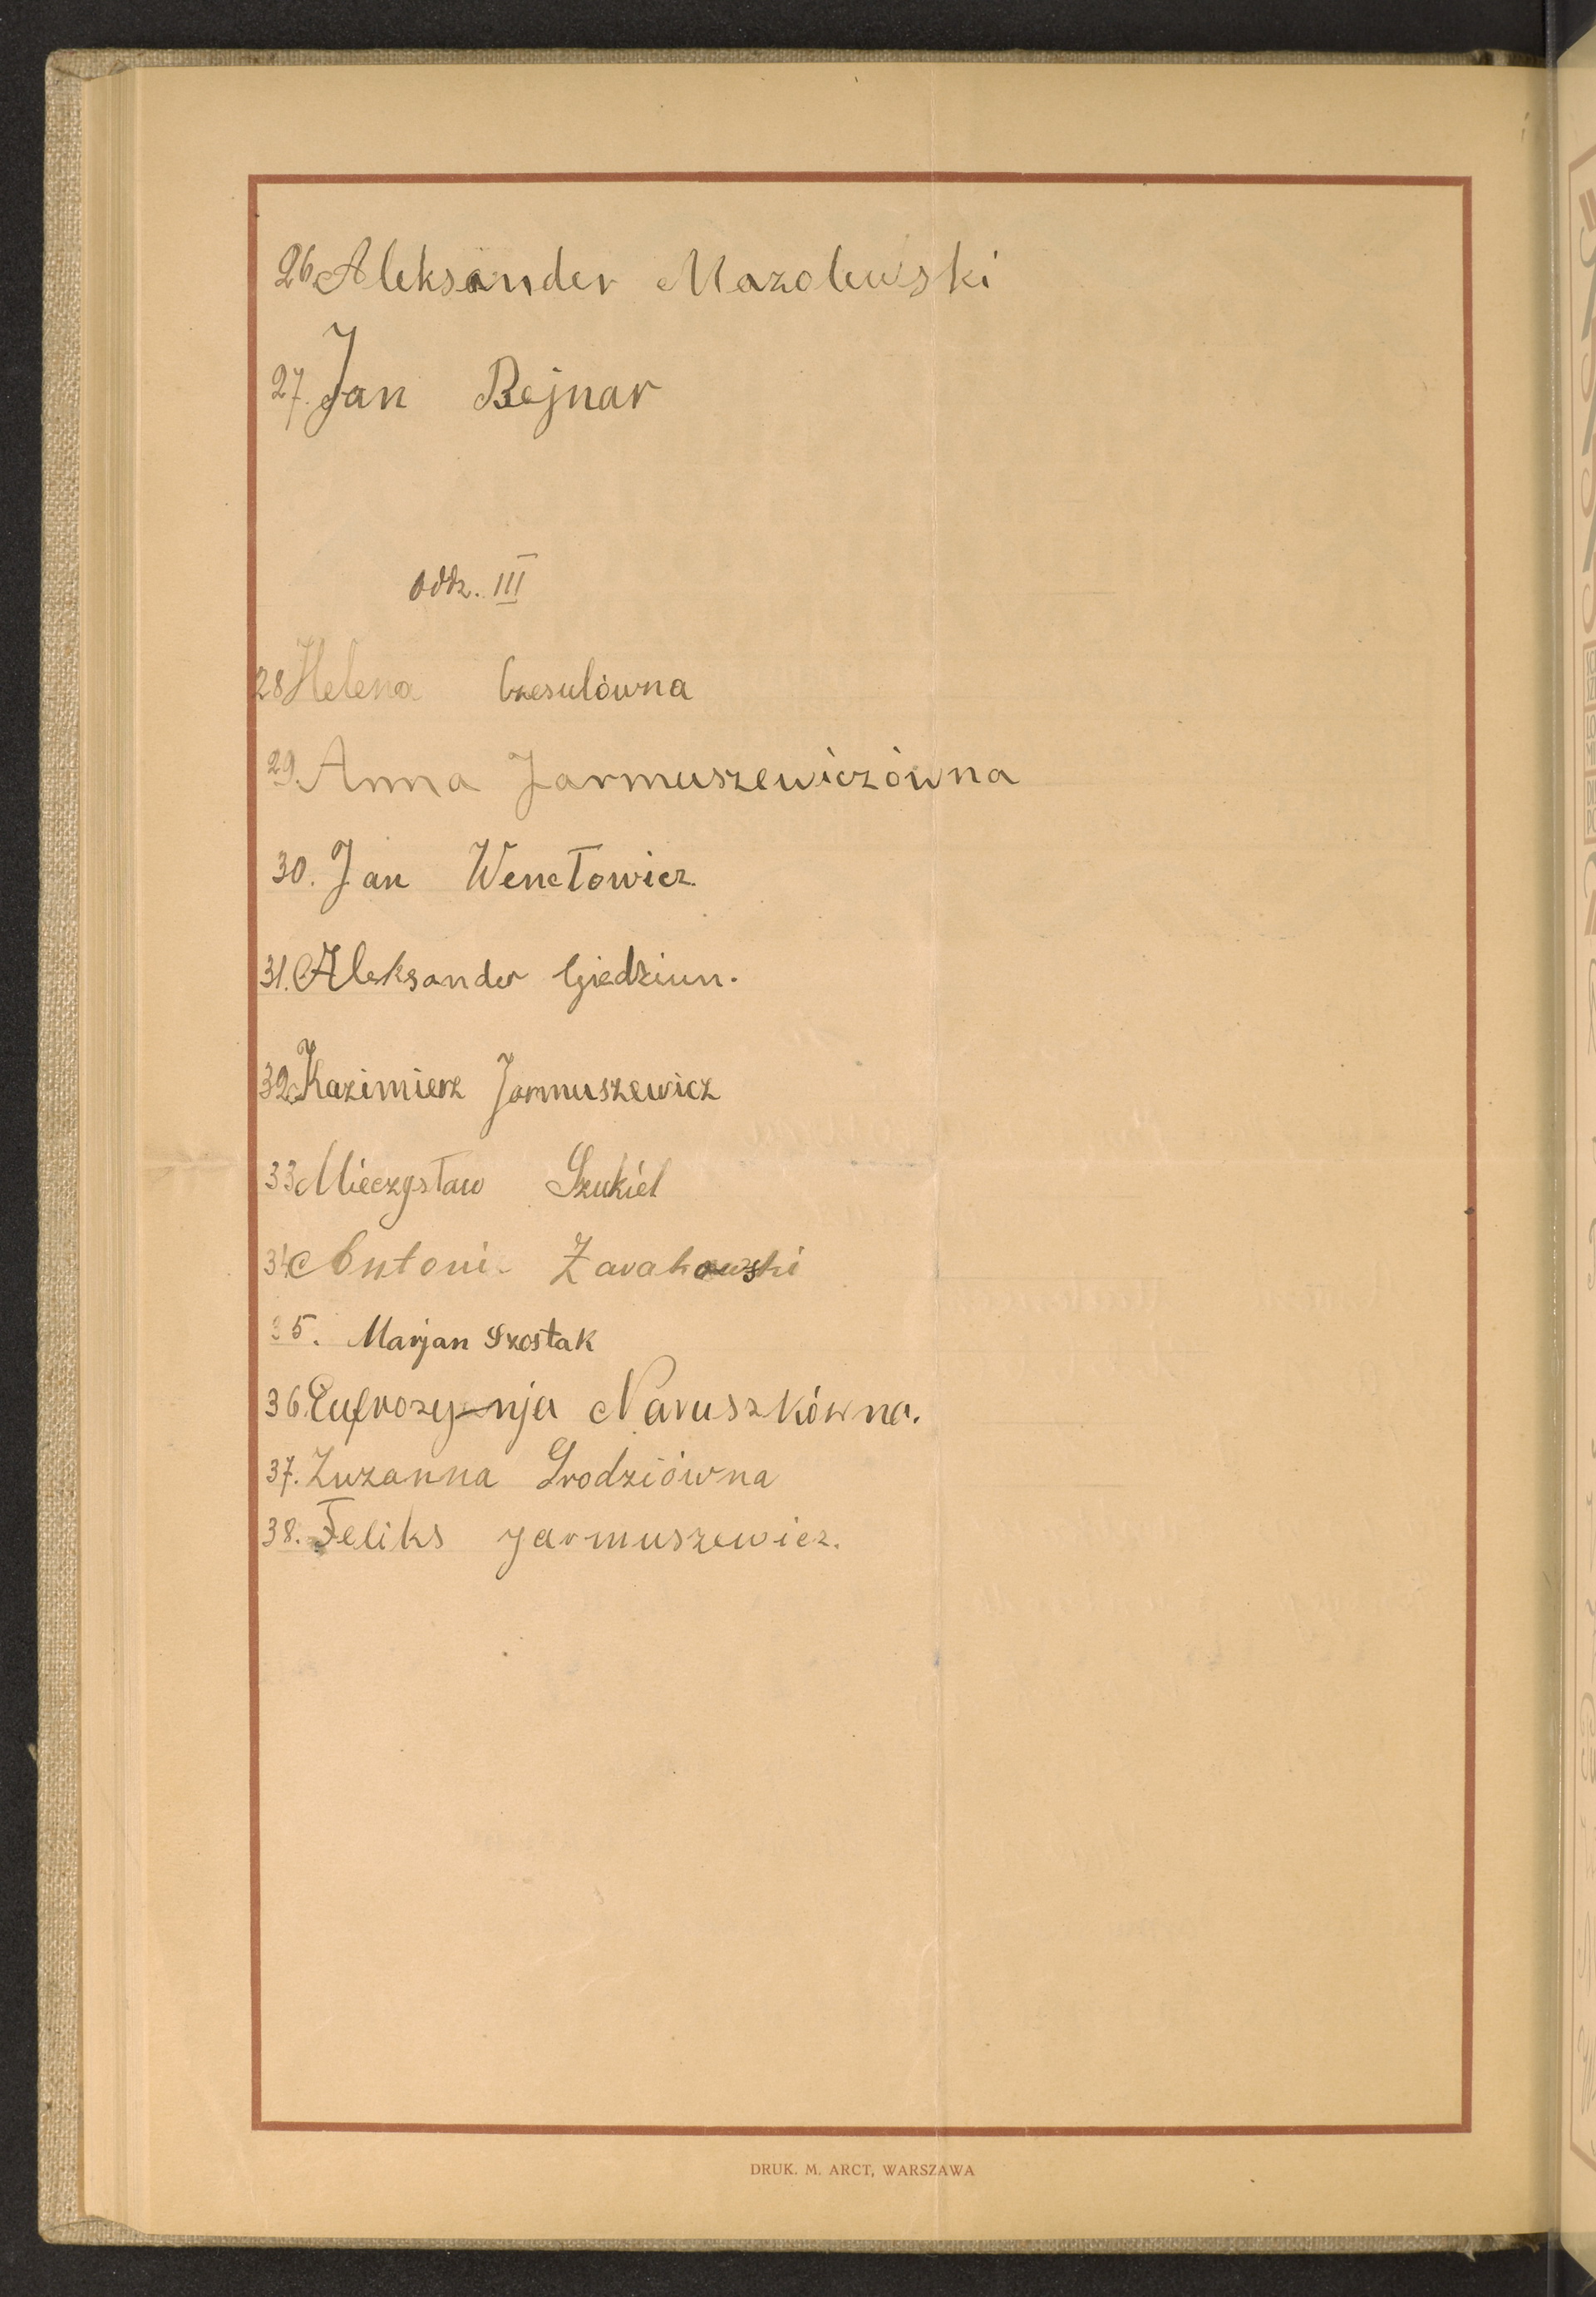 26 Aleksander Mazolewski
27. Jan Bejnar
oddz. III
28 Helena Czesulówna
29. Anna Jarmuszewiczówna
30. Jan Wencłowicz
31. Aleksander Giedziun.
32. Kazimierz Jarmuszewicz
33 Mieczysław Szukiel
34 Antoni Żarakowski
35. Marjan Szostak
36. Eufrozynja Naruszkówna.
37. Zuzanna Grodziówna
38. Feliks Jarmuszewicz.
DRUK. M. ARCT, WARSZAWA